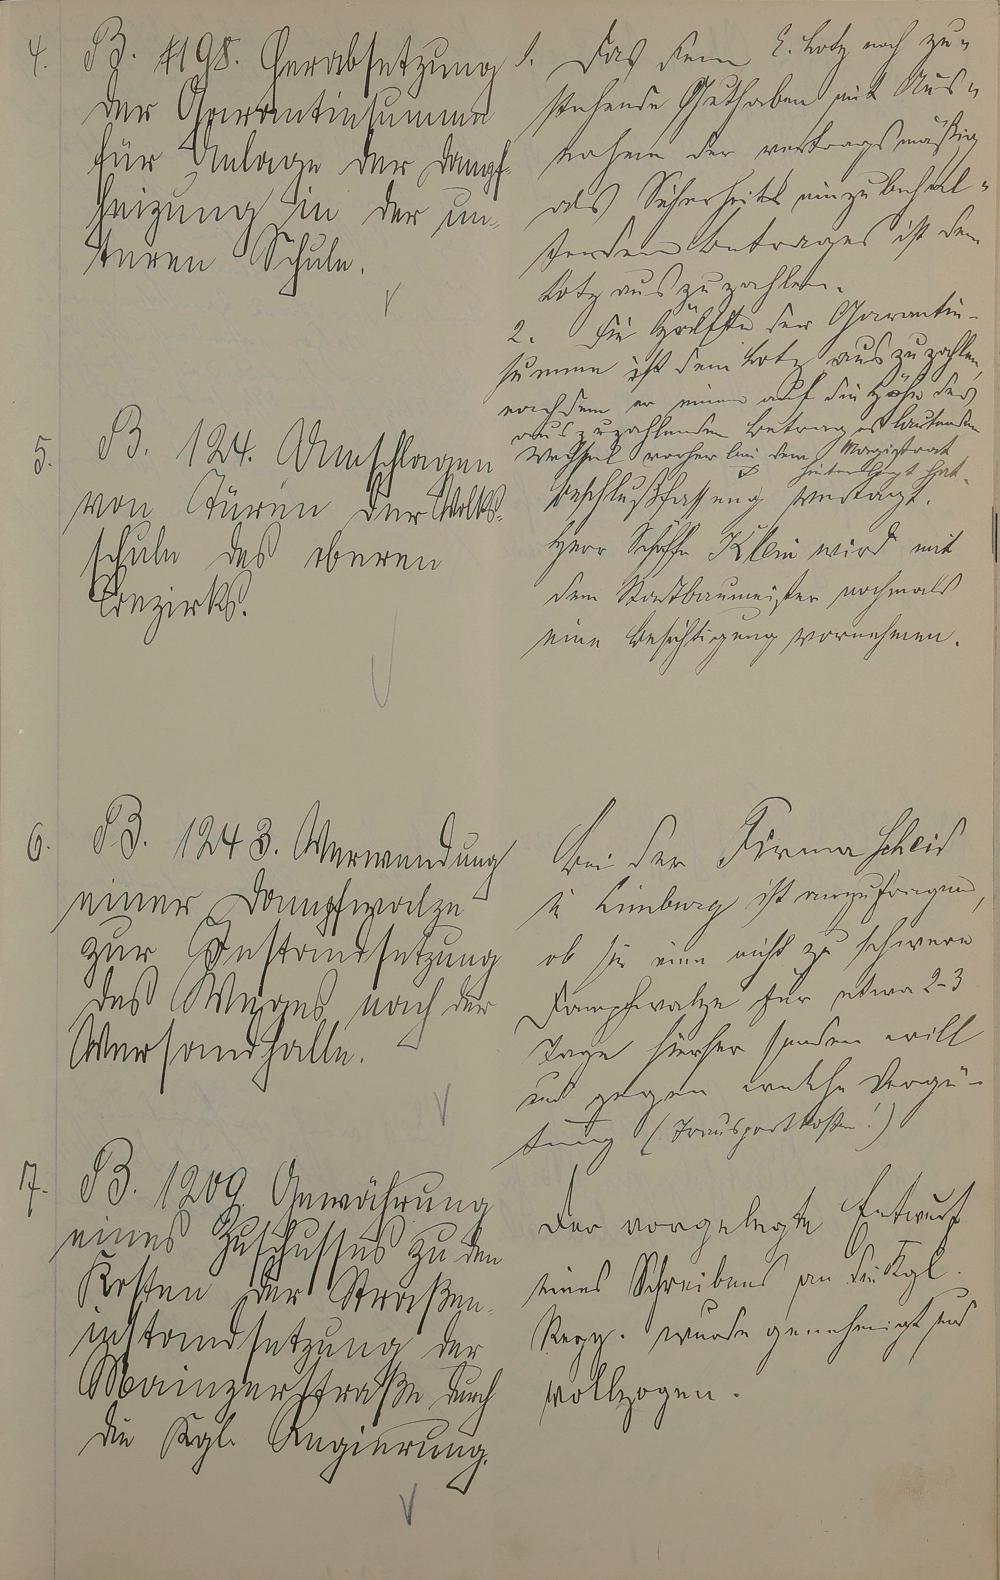 4. B. 1198. Herabsetzung
der Garantiesumme
für Anlage der Dampf-
heizung in der un-
teren Schule.
1. Das dem L. Lotz noch zu-
stehende Guthaben mit Aus-
nahme der vertragsmäßig
als Sicherheit einzubehal-
tenden Betrages ist dem
Lotz auszuzahlen.
2. Die Hälfte der Garantie-
summe ist dem Lotz auszuzahlen,
nachdem er einen auf die Höhe des
auszuzahlenden Betrages lautenden
Wechsel vorher bei dem Magistrat
hinterlegt hat.
5. B. 124. Umschlagen
von Türen der Volks-
schule des oberen
Bezirks.
Beschlußfassung vertagt.
Herr Schöffe Klein wird mit
dem Stadtbaumeister nochmals
eine Besichtigung vornehmen.
6. B. 1243. Verwendung
einer Dampfwalze
zur Instandsetzung
des Weges nach der
Versandhalle.
Bei der Firma Scheid
in Limburg ist anzufragen,
ob sie eine nicht zu schwere
Dampfwalze für etwa 2-3
Tage hierher senden will
und gegen welche Vergü-
tung (Transportkosten!)
7. B. 1209 Gewährung
eines Zuschusses zu den
Kosten der Straßen-
instandsetzung der
Mainzerstraße durch
die Kgl. Regierung.
Der vorgelegte Entwurf
eines Schreibens an die Kgl.
Regg. wurde genehmigt und
vollzogen.